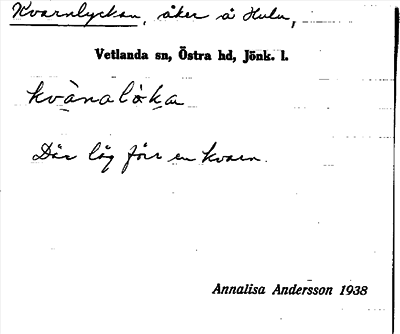 Kvarnlyckan, åker å Hulu,
Vetlanda sn, Östra hd, Jönk. l.
kvànalò̀ka
Där låg förr en kvarn.
Annalisa Andersson 1938